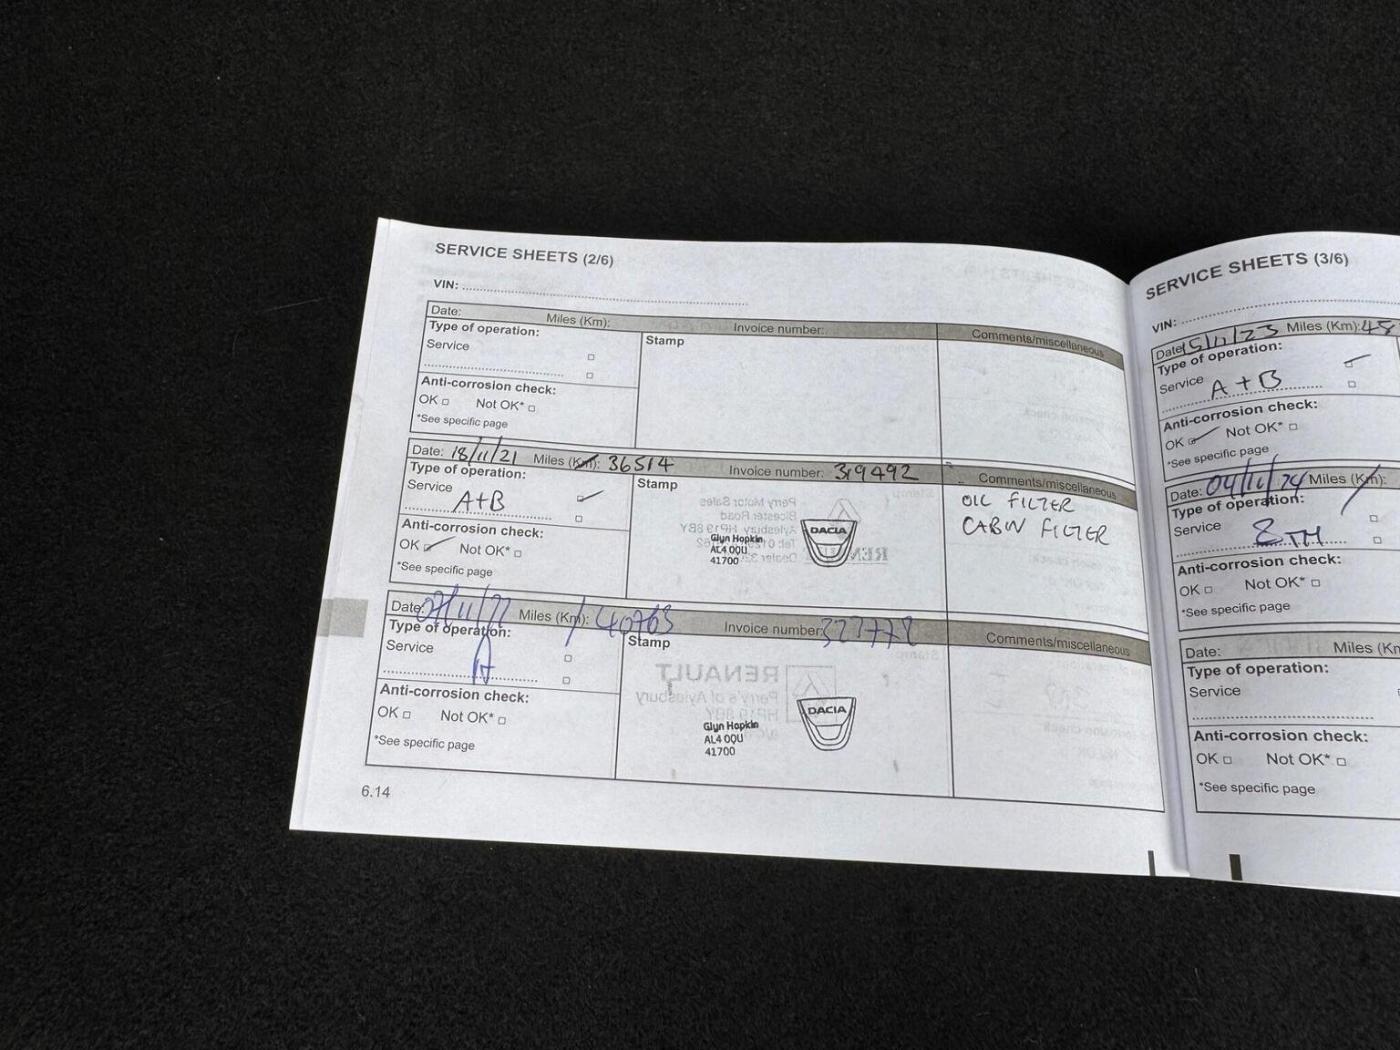 SERVICE SHEETS (2/6)
VIN:
Date: Miles (Km): Invoice number:
Type of operation: Stamp Comments/miscellaneous
Service
Anti-corrosion check:
OK Not OK*
*See specific page
Date: 18/11/21 Miles (Km): 36514 Invoice number: 319492
Type of operation: Stamp Comments/miscellaneous
Service
A+B
OIL FILTER
CABIN FILTER
DACIA
Glyn Hopkin
AL4 0QU
41700
Anti-corrosion check:
OK Not OK*
*See specific page
Date: 07/11/22 Miles (Km): 40763 Invoice number: 327778
Type of operation: Stamp Comments/miscellaneous
Service
A
DACIA
Glyn Hopkin
AL4 0QU
41700
Anti-corrosion check:
OK Not OK*
*See specific page
6.14
SERVICE SHEETS (3/6)
VIN:
Date: 15/11/23 Miles (Km): 48
Type of operation:
Service
A+B
Anti-corrosion check:
OK Not OK*
*See specific page
Date: 04/11/24 Miles (Km):
Type of operation:
Service
8TH
Anti-corrosion check:
OK Not OK*
*See specific page
Date: Miles (Km
Type of operation:
Service
Anti-corrosion check:
OK Not OK*
*See specific page